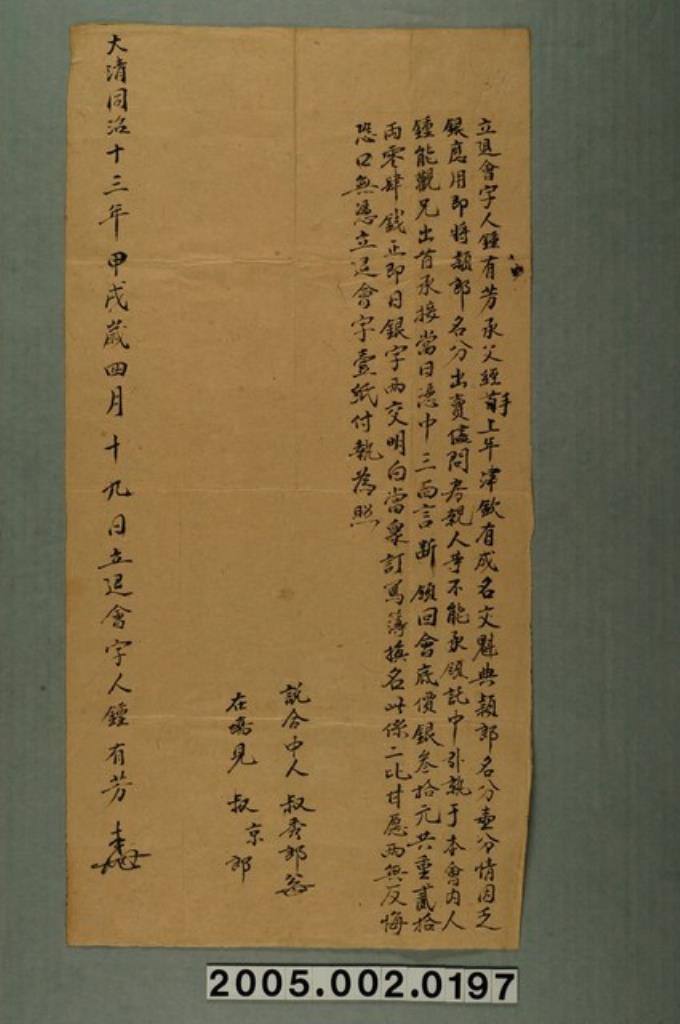 立退會字人鍾有芳承父經手上年津歛有成名文魁典頴郎名分壹分情因乏
銀應用即將頴郎名分出賣儘問房親人等不能承領託中引就于本會內人
鍾能觀兄出首承接當日憑中三面言断領回會底價銀叁拾元共重貳拾
両零肆錢正即日銀字両交明白當衆訂寫簿換名此係二比甘愿両無反悔
恐口無憑立退會字壹紙付執為照
說合中人叔秀郎
在塲見叔京郎
大清同治十三年甲戌歲四月十九日立退會字人鍾有芳
2005.002.0197